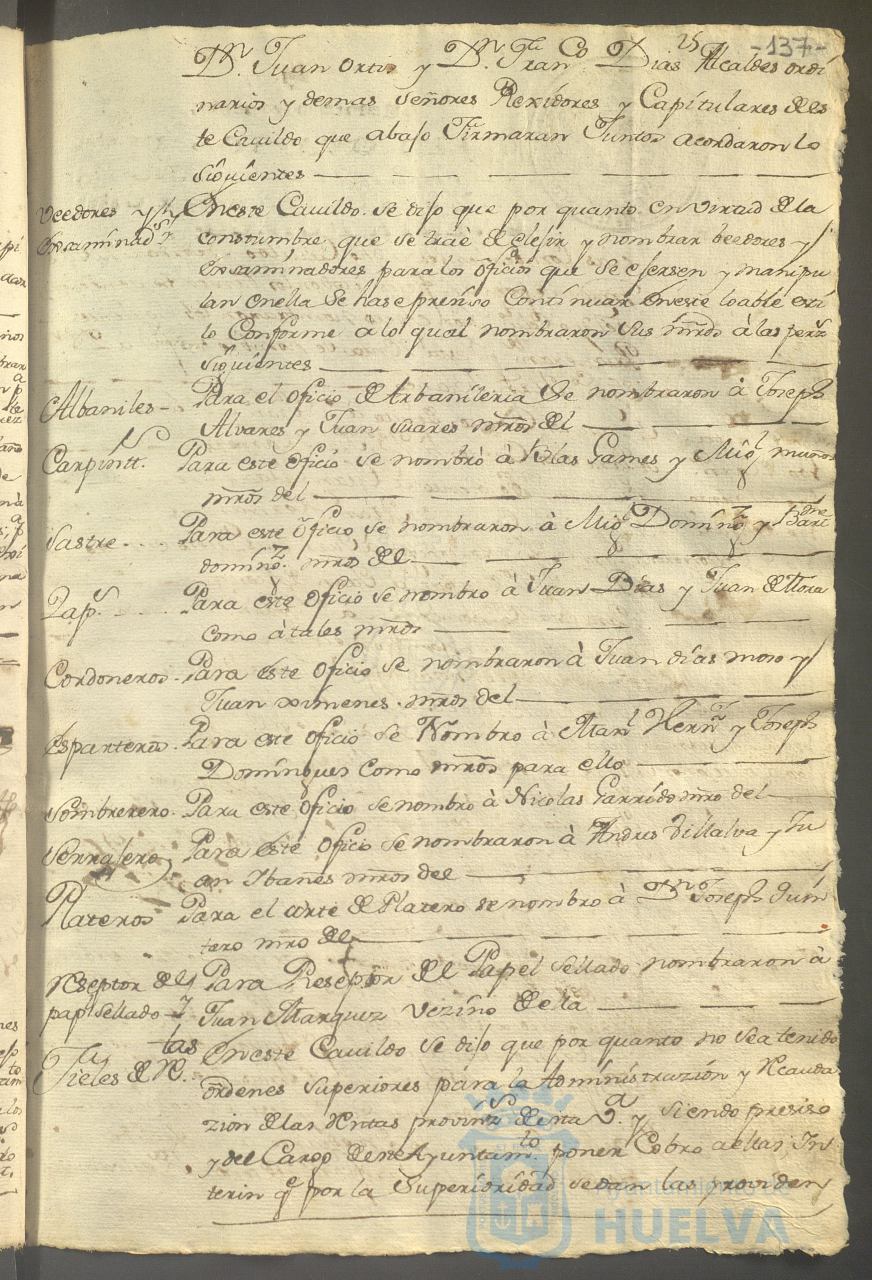 25 -137-
Dn. Juan Ortis y Dn. Franco Dias Alcaldes ordi
narios y demas señores Rexidores y Capitulares de es
te Cavildo que abajo Firmaran Juntos acordaron lo
siguientes
Veedores y En este Cavildo se dijo que por quanto en virtud de la
Exsaminads. constumbre que se traè de elejir y nombrar beedores y
Exsaminadores para los oficios que se ejersen y manipu
lan en ella se hase preciso Continuar en este loable exti
lo Conforme à lo qual nombraron sus mrds à las pers
siguientes
Albaniles - Para el oficio de Arbanileria se nombraron à Joseph
Alvares y Juan Suares mros del
Carpintt. Para este oficio se nombrò à Blas Games y Migl muños
mros del
Sastre Para este oficio se nombraron à Migl Doming. y Barme
doming. mros del
Zaps. Para este oficio se nombro à Juan Dias y Juan de Mora
como à tales mros
Cordoneros - Para este oficio se nombraron à Juan dias moso y
Juan ximenes mros del
Esparteros - Para este oficio se Nombro à Marl Hernz y Joseph
Domingues como mros para ello
Sombrerero - Para este oficio se nombrò à Nicolas Garrido mro del
Serrajero Para este oficio se nombraron à Andres Villalva y Ju
an Ibanes mros del
Plateros Para el arte de Platero se nombro à Dn Joseph Quin
tero mro del
Reseptor del Para Reseptor del Papel sellado nombraron à
pap. sellado Juan Marquez vezino de la
Fieles de Rtas En este Cavildo se dijo que por quanto no se a tenido
òrdenes superiores para la Administrazion y Recauda
zion de las Rentas provinzs de esta Va. y siendo presiso
y del Cargo de este Ayuntamto. poner Cobro a ellas In
terin qe por la Superioridad se dan las providen
Ayuntamiento de
HUELVA